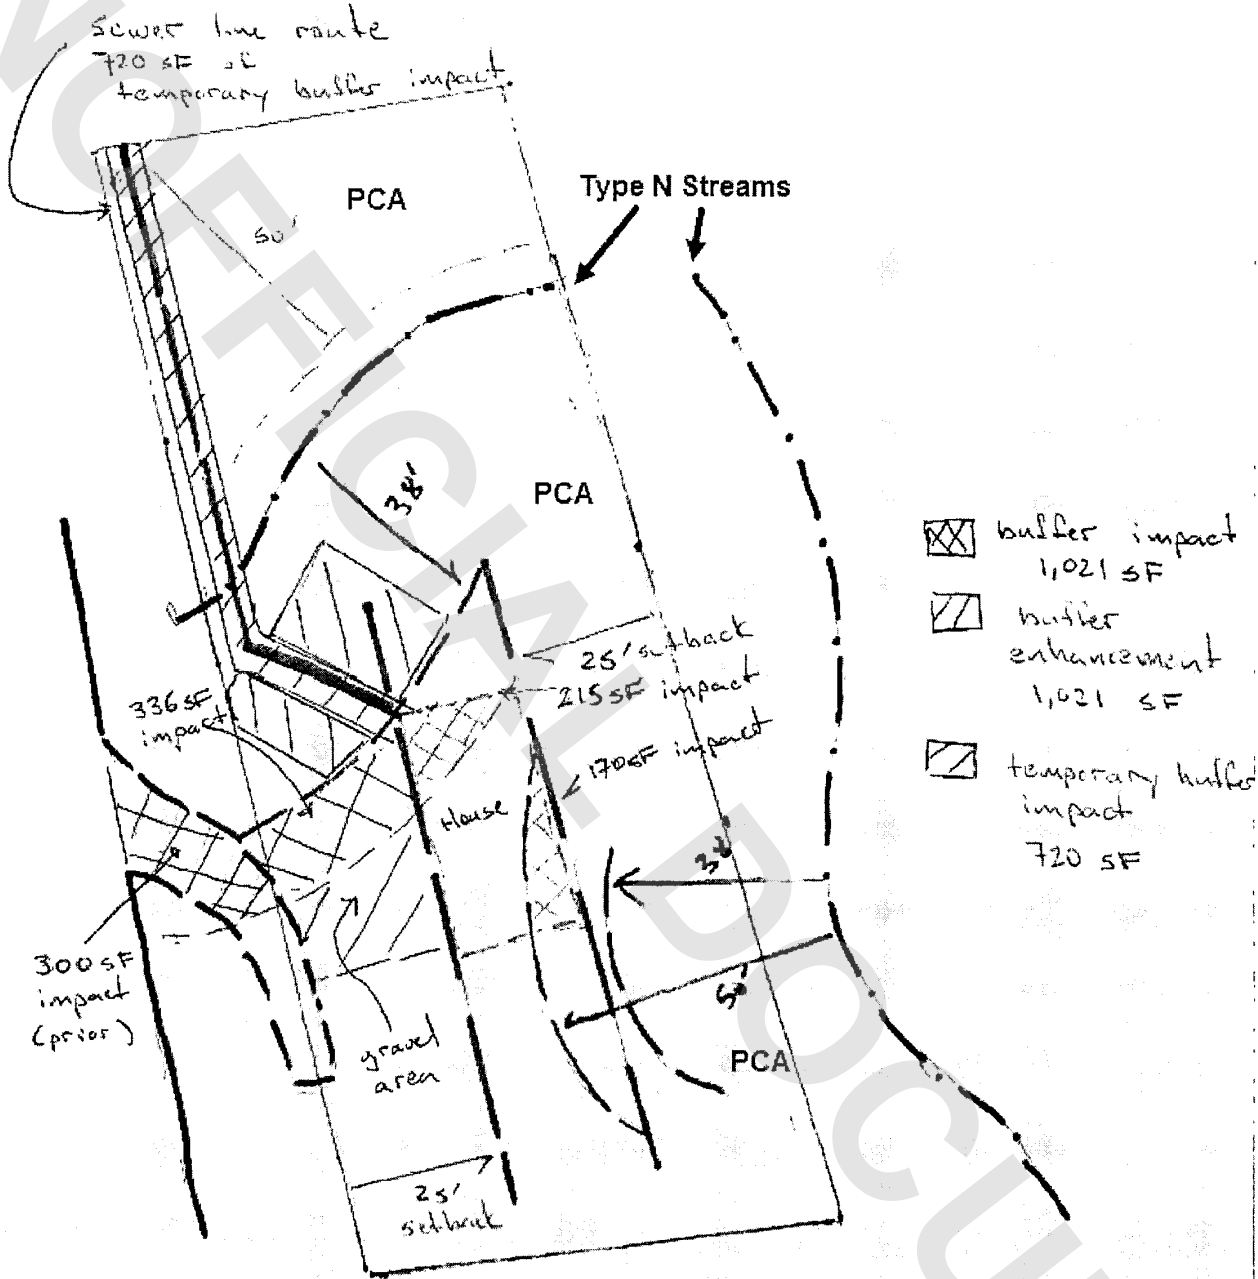 sewer line route
720 SF of
temporary buffer impact
PCA
Type N Streams
50'
38'
PCA
buffer impact
1,021 SF
buffer
enhancement
1,021 SF
temporary buffer
impact
720 SF
25' setback
215 SF impact
170 SF impact
336 SF
impact
House
50'
PCA
300 SF
impact
(prior)
gravel
area
25'
setback
UNOFFICIAL DOCU